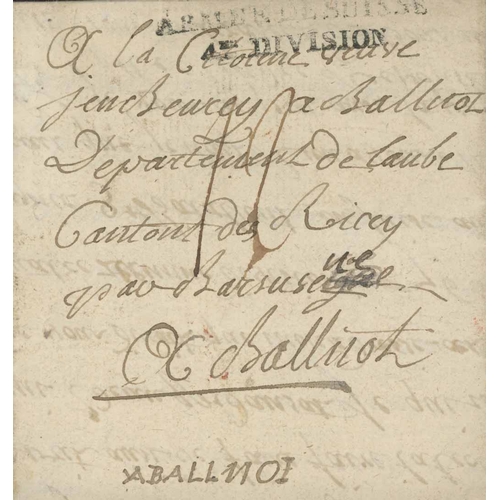 ARMÉE DE SUISSE
4me DIVISION
A la Citoiene veuve
jencheurey a Ballnot
Departement de laube
Cantont des Ricey
par Barsusene
A Ballnot
ABALLNOT